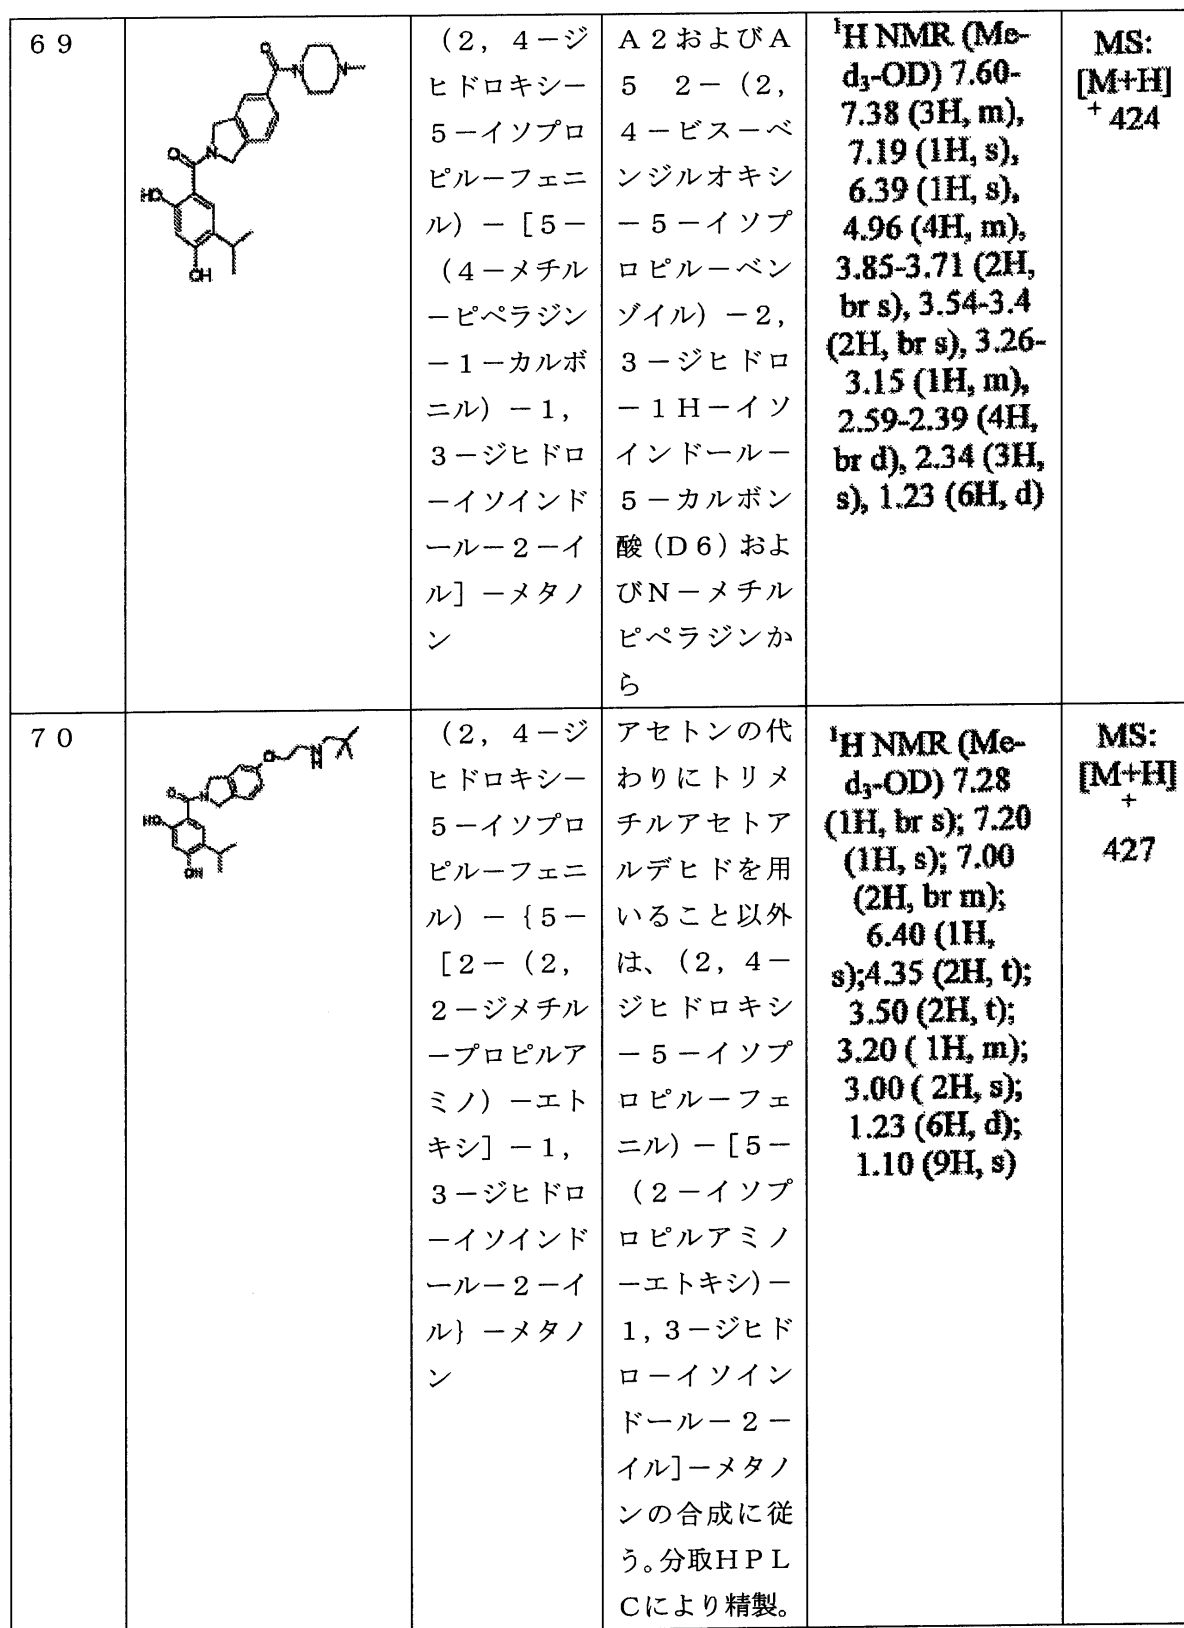 69
(2，4－ジ
ヒドロキシ－
5－イソプロ
ピル－フェニ
ル）－［5－
（4－メチル
－ピペラジン
－1－カルボ
ニル）－1，
3－ジヒドロ
－イソインド
ール－2－イ
ル］－メタノ
ン
A2およびA
5　2－（2，
4－ビス－ベ
ンジルオキシ
－5－イソプ
ロピル－ベン
ゾイル）－2，
3－ジヒドロ
－1H－イソ
インドール－
5－カルボン
酸（D6）およ
びN－メチル
ピペラジンか
ら
¹H NMR (Me-
d₃-OD) 7.60-
7.38 (3H, m),
7.19 (1H, s),
6.39 (1H, s),
4.96 (4H, m),
3.85-3.71 (2H,
br s), 3.54-3.4
(2H, br s), 3.26-
3.15 (1H, m),
2.59-2.39 (4H,
br d), 2.34 (3H,
s), 1.23 (6H, d)
MS:
[M+H]
⁺ 424
O
N
N
O
N
HO
OH
70
（2，4－ジ
ヒドロキシ－
5－イソプロ
ピル－フェニ
ル）－｛5－
［2－（2，
2－ジメチル
－プロピルア
ミノ）－エト
キシ］－1，
3－ジヒドロ
－イソインド
ール－2－イ
ル｝－メタノ
ン
アセトンの代
わりにトリメ
チルアセトア
ルデヒドを用
いること以外
は、（2，4－
ジヒドロキシ
－5－イソプ
ロピル－フェ
ニル）－［5－
（2－イソプ
ロピルアミノ
－エトキシ）－
1，3－ジヒド
ロ－イソイン
ドール－2－
イル］－メタノ
ンの合成に従
う。分取HPL
Cにより精製。
¹H NMR (Me-
d₃-OD) 7.28
(1H, br s); 7.20
(1H, s); 7.00
(2H, br m);
6.40 (1H,
s);4.35 (2H, t);
3.50 (2H, t);
3.20 ( 1H, m);
3.00 ( 2H, s);
1.23 (6H, d);
1.10 (9H, s)
MS:
[M+H]
+
427
O
N
H
O
N
HO
OH